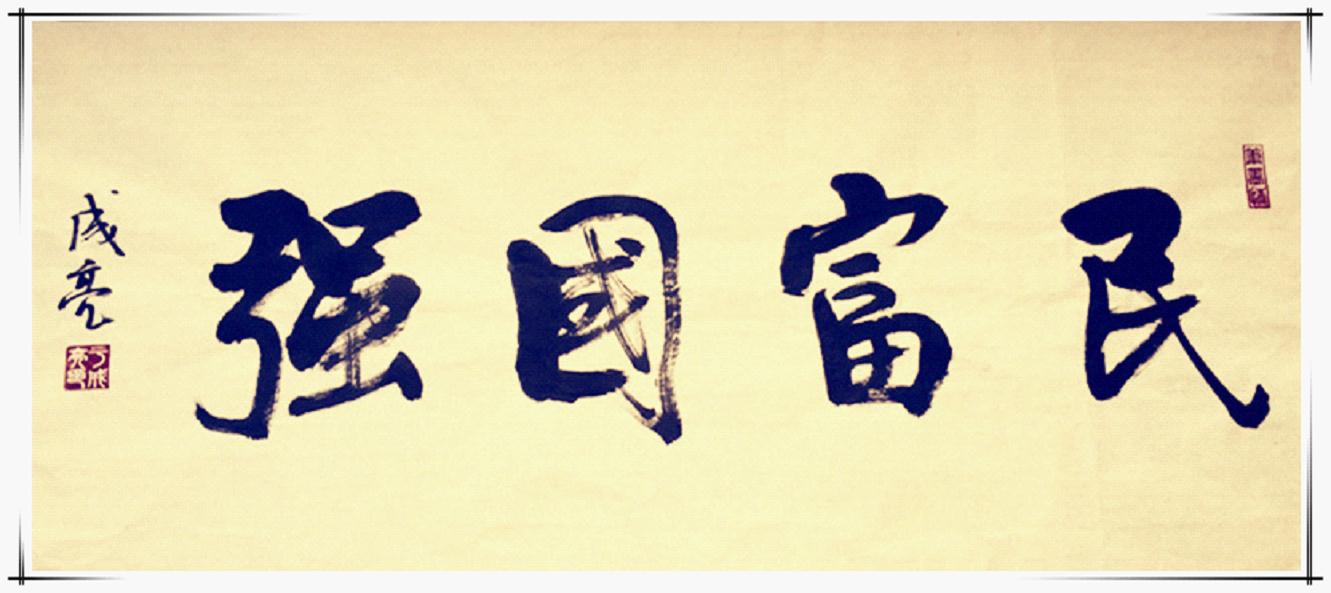 民富國强
成亮